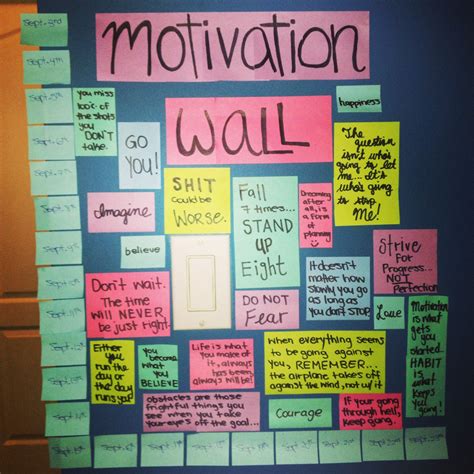 Motivation
WALL
Sept. 3rd
Sept. 4th
Sept. 5th
you miss
100% of
the shots
you
DON'T
take.
GO
YOU!
happiness
The question
isn't who's
going to let
me... It's
who's going
to stop
Me!
SHIT
could be
WORSE.
Fall
7 times...
STAND
UP
Eight
Dreaming,
after all, is
a form of
planning
Imagine
believe
Strive
For
Progress...
NOT
Perfection
Don't wait.
The time
will NEVER
be just right.
DO NOT
Fear
It doesn't
matter how
slowly you go
as long as
you don't STOP.
Love
Motivation
is what
gets you
started
HABIT
is
what
keeps
you
going!
Either
you
run the
day or
the day
runs you!
You
become
what
you
BELIEVE
Life is what
you make of
it, always
has been,
always will be!
When everything seems
to be going against
you, REMEMBER...
the airplane takes off
against the wind, not w/ it
obstacles are those
frightful things you
see when you take
your eyes off the goal...
Courage
If your going
through hell,
keep going.